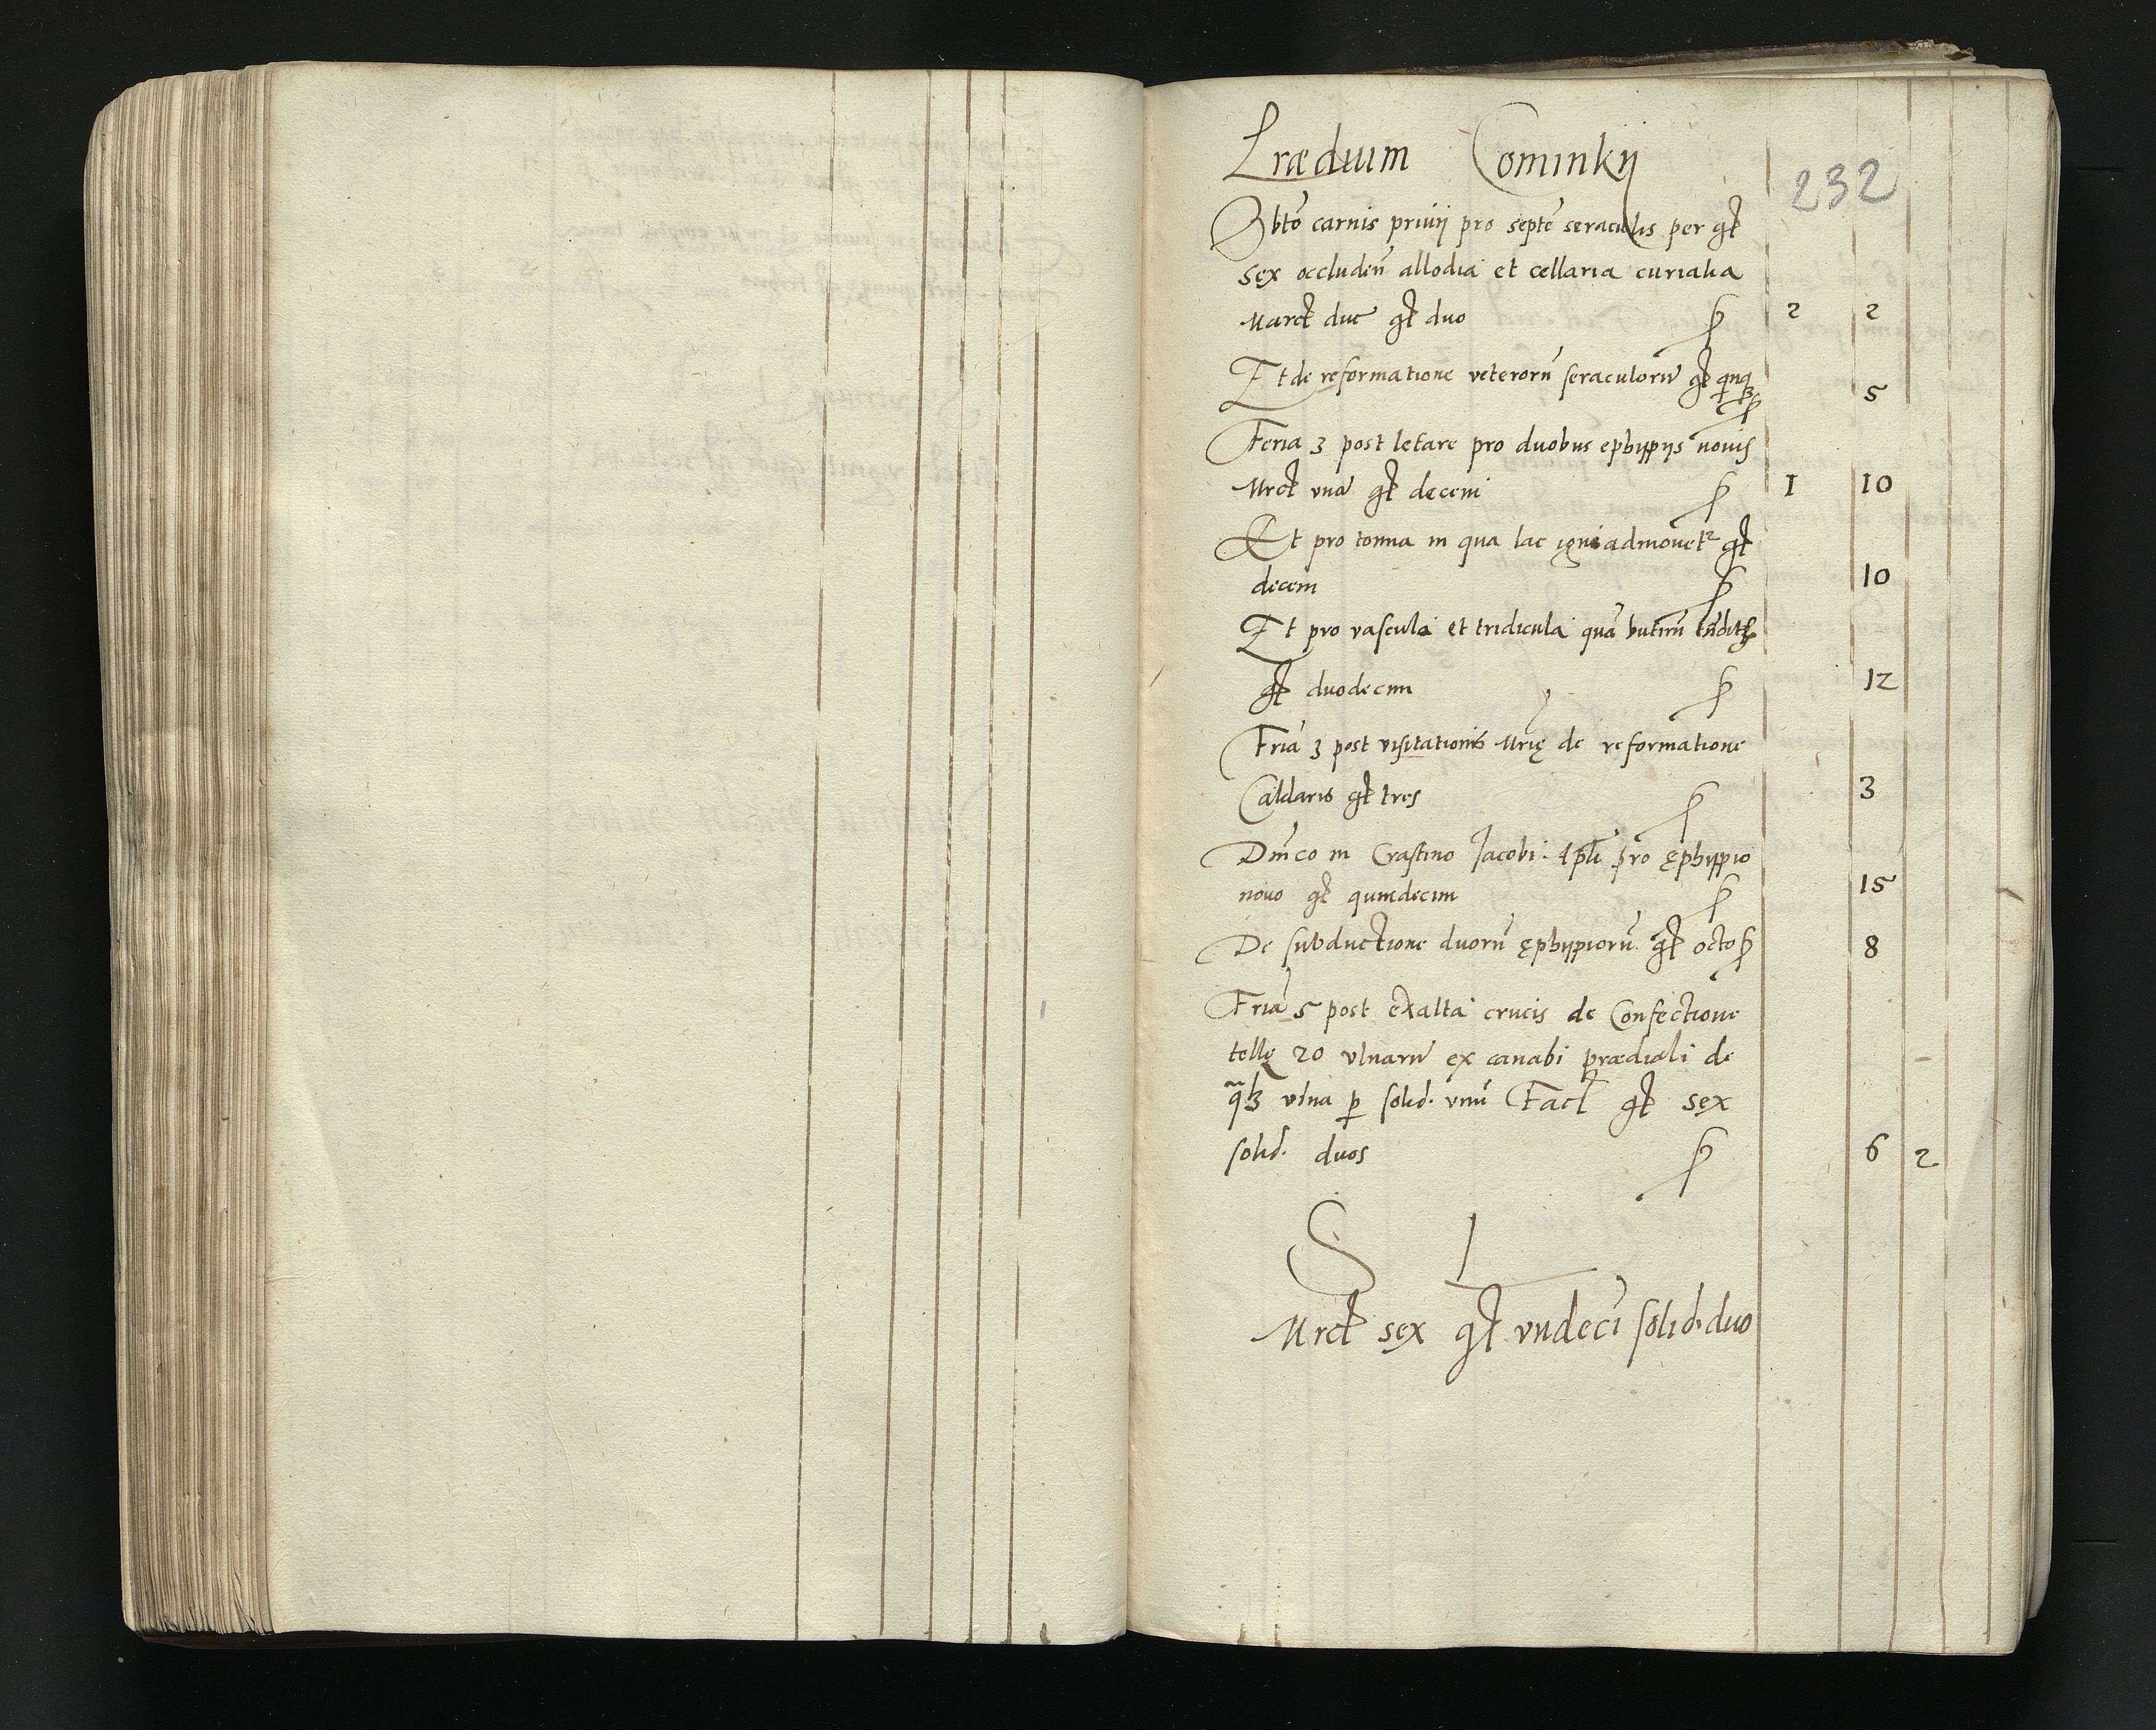 Prædium Cominkij
232
Sbto carnis privij pro septe seraculis per gt
sex occluden allodia et cellaria curialia
Marct due gt duo 2 2
Et de reformatione veterorũ seraculorũ gt qnqȝ 5
Feria 3 post letare pro duobus ephyppijs novis
Mrct vna gt decem 1 10
Et pro tonna in qua lac igni admovetr gt
decem 10
Et pro vascula et tridicula qua butirũ
gt duodecim 12
Fria 3 post visitationis Mrię de reformatione
Caldaris gt tres 3
Dmco in Crastino Jacobi Apli pro ęphyppio
novo gt quindecim 15
De subductione duorũ ęphyppiorũ gt octo 8
Fria 5 post exalta crucis de Confectione
tellę 20 vlnarũ ex canabi prædiali de
qȝ vlna p solid. vnũ Fact gt sex
solid. duos 6 2
S
Mrct sex gt vndeci solid. duo